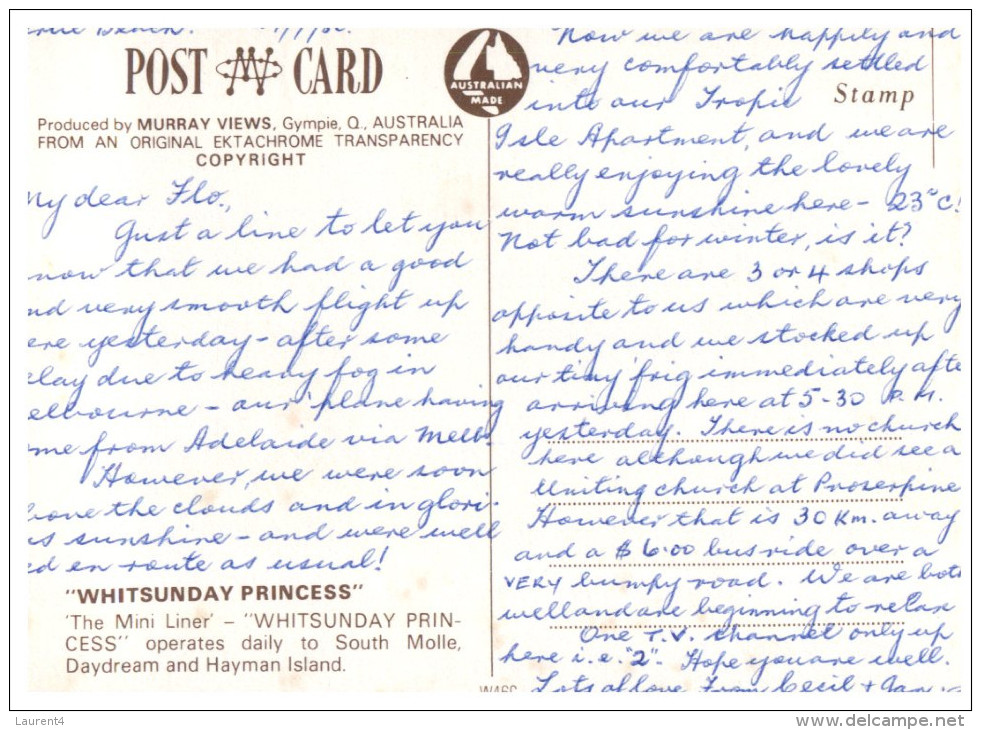 Beach.
POST CARD
AUSTRALIAN
MADE
Produced by MURRAY VIEWS, Gympie, Q., AUSTRALIA
FROM AN ORIGINAL EKTACHROME TRANSPARENCY
COPYRIGHT
My dear Flo.,
Just a line to let you
now that we had a good
nd very smooth flight up
ere yesterday - after some
elay due to heavy fog in
elbourne - our 'plane having
me from Adelaide via Melb.
However, we were soon
bove the clouds and in glori-
us sunshine - and were well
ed en-route as usual!
"WHITSUNDAY PRINCESS"
'The Mini Liner' – "WHITSUNDAY PRIN-
CESS" operates daily to South Molle,
Daydream and Hayman Island.
Now we are happily and
very comfortably settled
into our Tropic
Stamp
Isle Apartment, and we are
really enjoying the lovely
warm sunshine here - 23°C!
Not bad for winter, is it?
There are 3 or 4 shops
opposite to us which are very
handy and we stocked up
our tiny 'frig immediately afte
arriving here at 5-30 P.M.
yesterday. There is no church
here although we did see a
Uniting church at Proserpine
However that is 30 Km. away
and a $6.00 bus ride over a
VERY bumpy road. We are both
well and are beginning to relax
One T.V. channel only up
here i.e. "2". Hope you are well.
Lots of love from Cecil +
Laurent4
delcampe.net